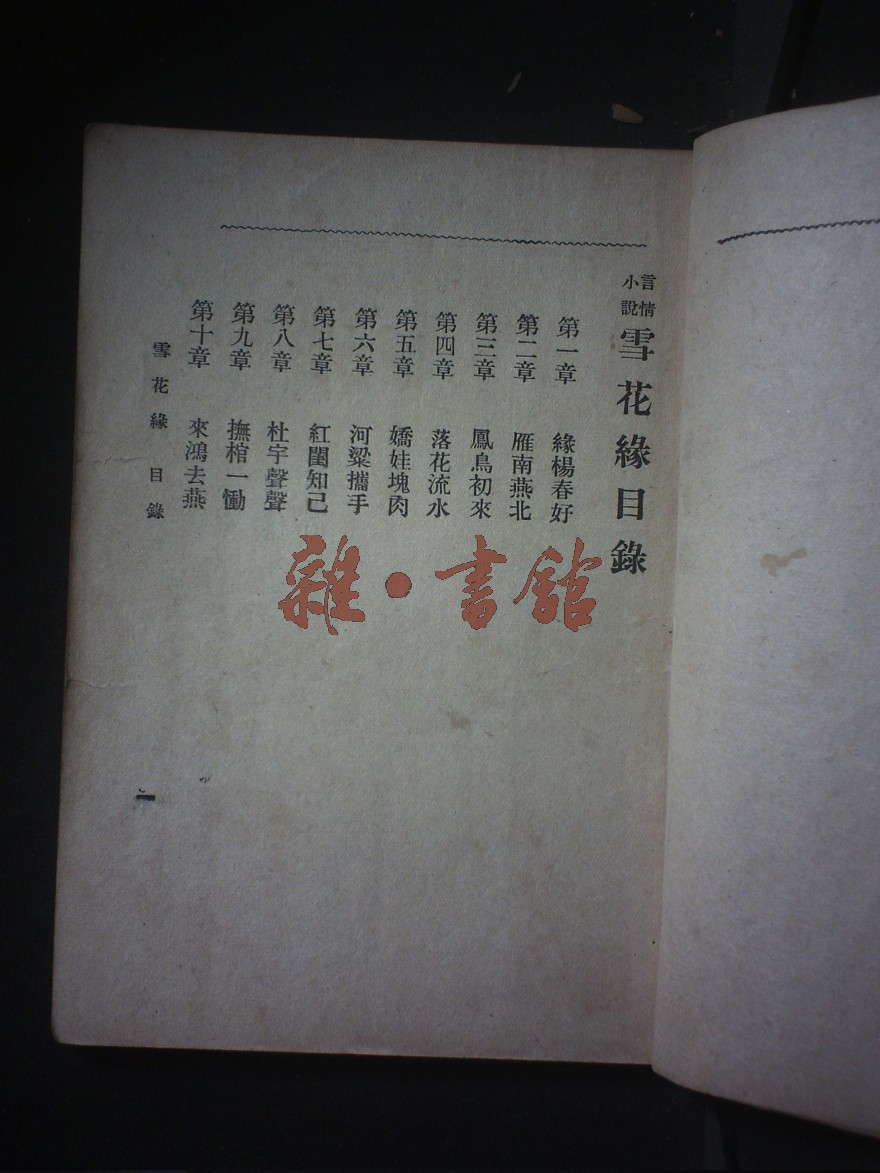 言情
小說
雪花緣目錄
第一章 緣楊春好
第二章 雁南燕北
第三章 鳳鳥初來
第四章 落花流水
第五章 嬌娃塊肉
第六章 河粱攜手
第七章 紅閨知己
第八章 杜宇聲聲
第九章 撫棺一慟
第十章 來鴻去燕
雪花緣 目錄
一
雜·書館